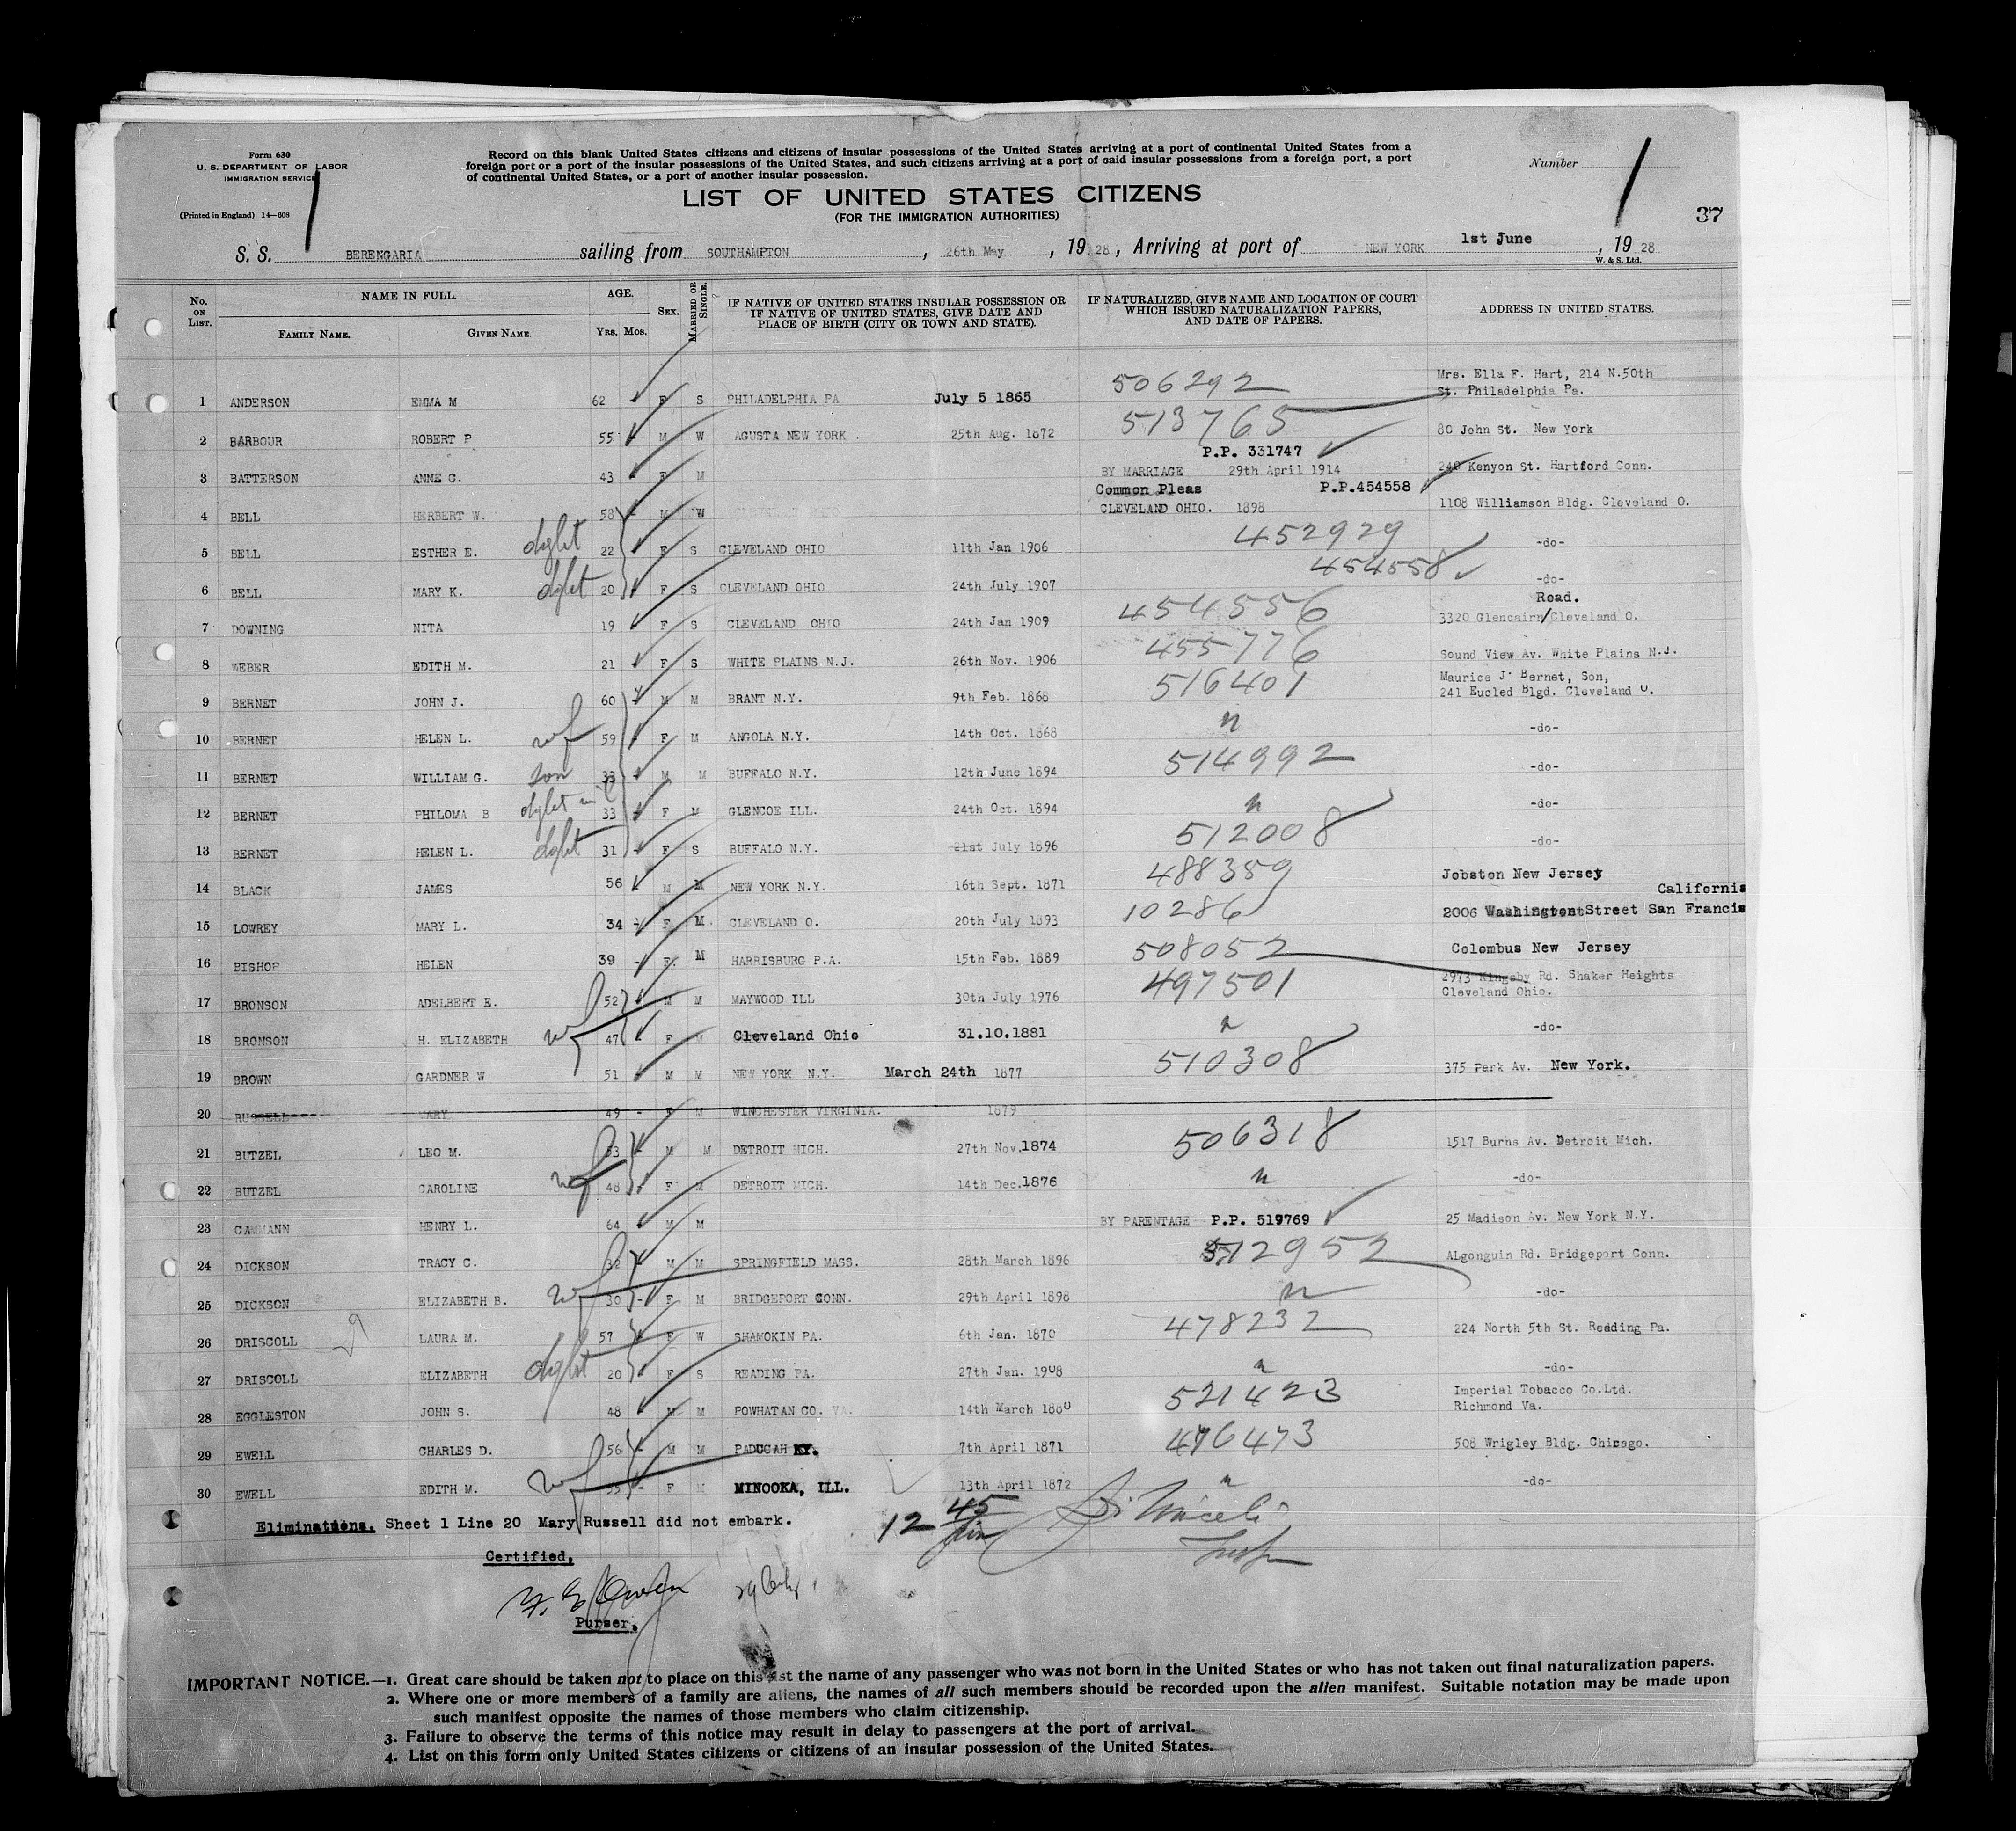 Form 630
U. S. DEPARTMENT OF LABOR
IMMIGRATION SERVICE
(Printed in England) 14—608
Record on this blank United States citizens and citizens of insular possessions of the United States arriving at a port of continental United States from a
foreign port or a port of the insular possessions of the United States, and such citizens arriving at a port of said insular possessions from a foreign port, a port
of continental United States, or a port of another insular possession.
Number
LIST OF UNITED STATES CITIZENS
(FOR THE IMMIGRATION AUTHORITIES)
37
S. S. BERENGARIA sailing from SOUTHAMPTON, 26th May, 1928, Arriving at port of NEW YORK 1st June, 1928
W. & S. Ltd.
No. ON LIST. NAME IN FULL. FAMILY NAME. GIVEN NAME. AGE. Yrs. Mos. SEX. MARRIED OR SINGLE. IF NATIVE OF UNITED STATES INSULAR POSSESSION OR IF NATIVE OF UNITED STATES, GIVE DATE AND PLACE OF BIRTH (CITY OR TOWN AND STATE). IF NATURALIZED, GIVE NAME AND LOCATION OF COURT WHICH ISSUED NATURALIZATION PAPERS, AND DATE OF PAPERS. ADDRESS IN UNITED STATES.
1 ANDERSON EMMA M 62 - F S PHILADELPHIA PA July 5 1865 506292 Mrs. Ella F. Hart, 214 N.50th St. Philadelphia Pa.
2 BARBOUR ROBERT P 55 - M W AGUSTA NEW YORK . 25th Aug. 1872 513765 80 John St. New York
P.P. 331747
3 BATTERSON ANNE G. 43 - F M BY MARRIAGE 29th April 1914 240 Kenyon St. Hartford Conn.
Common Pleas P.P.454558
4 BELL HERBERT W. 58 - M W CLEVELAND OHIO. 1898 1108 Williamson Bldg. Cleveland O.
5 BELL ESTHER E. dght 22 F S CLEVELAND OHIO 11th Jan 1906 452929 -do-
6 BELL MARY K. dght 20 F S CLEVELAND OHIO 24th July 1907 454558 -do-
Road.
7 DOWNING NITA 19 - F S CLEVELAND OHIO 24th Jan 1909 454556 3320 Glencairn/Cleveland O.
8 WEBER EDITH M. 21 - F S WHITE PLAINS N.J. 26th Nov. 1906 455776 Sound View Av. White Plains N.J.
9 BERNET JOHN J. 60 - M M BRANT N.Y. 9th Feb. 1868 516401 Maurice J. Bernet, Son, 241 Eucled Blgd. Cleveland O.
10 BERNET HELEN L. wf 59 F M ANGOLA N.Y. 14th Oct. 1868 " -do-
11 BERNET WILLIAM G. son 33 - M M BUFFALO N.Y. 12th June 1894 514992 -do-
12 BERNET PHILOMA B dght in l 33 - F M GLENCOE ILL. 24th Oct. 1894 " -do-
13 BERNET HELEN L. dght 31 - F S BUFFALO N.Y. 21st July 1896 512008 -do-
14 BLACK JAMES 56 M M NEW YORK N.Y. 16th Sept. 1871 488359 Jobston New Jersey
California
15 LOWREY MARY L. 34 - F M. CLEVELAND O. 20th July 1893 10286 2006 Washington Street San Francis
16 BISHOP HELEN 39 - F. M HARRISBURG P.A. 15th Feb. 1889 508052 Colombus New Jersey
17 BRONSON ADELBERT E. 52 M M MAYWOOD ILL 30th July 1976 497501 2973 Kingsby Rd. Shaker Heights Cleveland Ohio.
18 BRONSON H. ELIZABETH wf 47 F M Cleveland Ohio 31.10.1881 " -do-
19 BROWN GARDNER W 51 - M M NEW YORK N.Y. March 24th 1877 510308 375 Park Av. New York.
20 RUSSELL MARY 49 - F M WINCHESTER VIRGINIA. 1879
21 BUTZEL LEO M. 53 - M M DETROIT MICH. 27th Nov.1874 506318 1517 Burns Av. Detroit Mich.
22 BUTZEL CAROLINE wf 48 F M DETROIT MICH. 14th Dec.1876 " -do-
23 CAMMANN HENRY L. 64 - M M BY PARENTAGE P.P. 519769 25 Madison Av. New York N.Y.
24 DICKSON TRACY C. 32 M M SPRINGFIELD MASS. 28th March 1896 512952 Algonguin Rd. Bridgeport Conn.
25 DICKSON ELIZABETH B. wf 30 - F M BRIDGEPORT CONN. 29th April 1898 " -do-
26 DRISCOLL LAURA M. 57 F W SHAMOKIN PA. 6th Jan. 1870 478232 224 North 5th St. Reading Pa.
27 DRISCOLL ELIZABETH dght 20 F S READING PA. 27th Jan. 1908 " -do-
28 EGGLESTON JOHN S. 48 M M POWHATAN CO. VA. 14th March 1880 521423 Imperial Tobacco Co.Ltd. Richmond Va.
29 EWELL CHARLES D. 56 - M M PADUCAH KY. 7th April 1871 476473 508 Wrigley Bldg. Chicago.
30 EWELL EDITH M. wf 55 - F M MINOOKA, ILL. 13th April 1872 " -do-
Eliminations. Sheet 1 Line 20 Mary Russell did not embark.
12 45
Certified,
Purser.
IMPORTANT NOTICE.—1. Great care should be taken not to place on this list the name of any passenger who was not born in the United States or who has not taken out final naturalization papers.
2. Where one or more members of a family are aliens, the names of all such members should be recorded upon the alien manifest. Suitable notation may be made upon
such manifest opposite the names of those members who claim citizenship.
3. Failure to observe the terms of this notice may result in delay to passengers at the port of arrival.
4. List on this form only United States citizens or citizens of an insular possession of the United States.